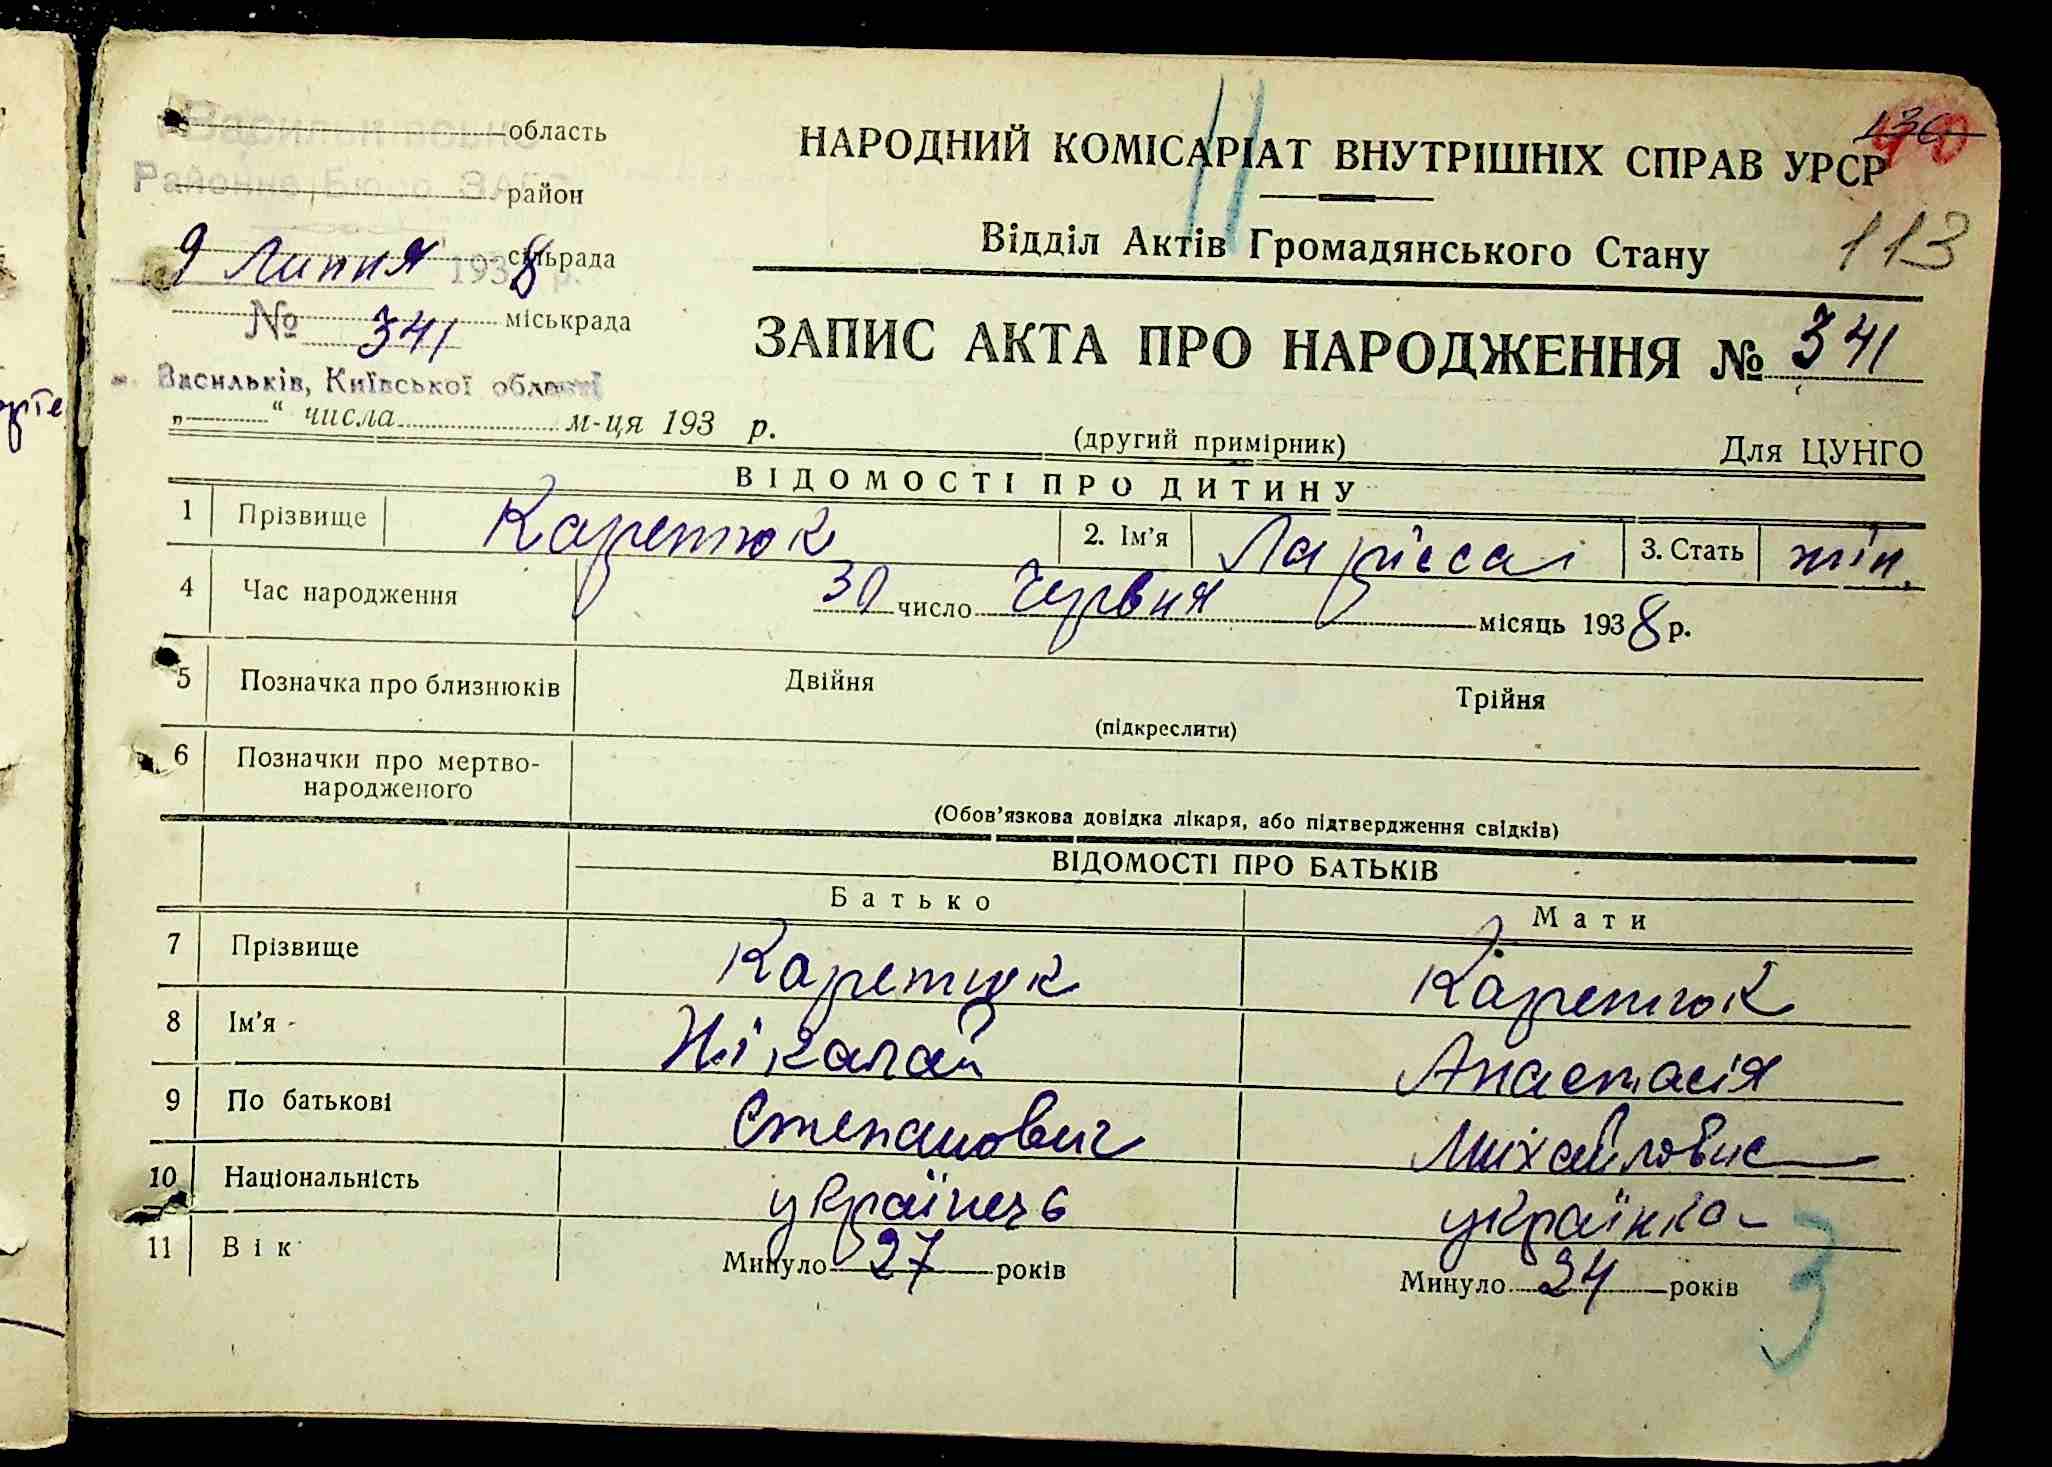 область
Районне Бюро ЗАГС
район
9 Липня 1938 р.
сільрада
№ 341
міськрада
м. Васильків, Київської області
„ “ числа м-ця 193 р.
НАРОДНИЙ КОМІСАРІАТ ВНУТРІШНІХ СПРАВ УРСР
Відділ Актів Громадянського Стану
113
ЗАПИС АКТА ПРО НАРОДЖЕННЯ № 341
(другий примірник) Для ЦУНГО
ВІДОМОСТІ ПРО ДИТИНУ
1 Прізвище Каретюк 2. Ім’я Ларісса 3. Стать жін.
4 Час народження 30 число Червня місяць 1938 р.
5 Позначка про близнюків Двійня Трійня
(підкреслити)
6 Позначки про мертво-
народженого
(Обов’язкова довідка лікаря, або підтвердження свідків)
ВІДОМОСТІ ПРО БАТЬКІВ
Батько Мати
7 Прізвище Каретюк Каретюк
8 Ім’я Ніколай Анастасія
9 По батькові Степанович Міхайловна
10 Національність українець українка
11 Вік Минуло 27 років Минуло 24 років
3